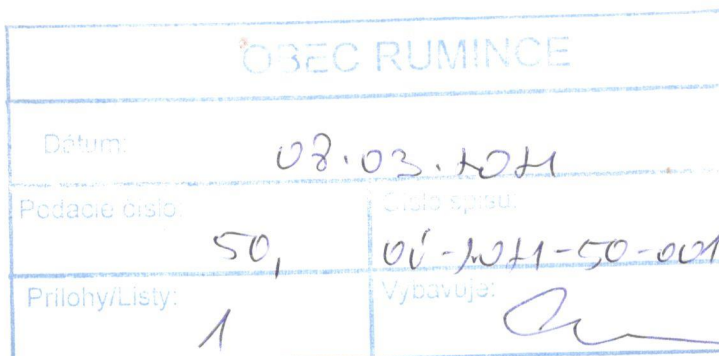 OBEC RUMINCE
Dátum: 08.03.2021
Podacie číslo: Číslo spisu:
50, OÚ-2021-50-001
Prílohy/Listy: Vybavuje:
1